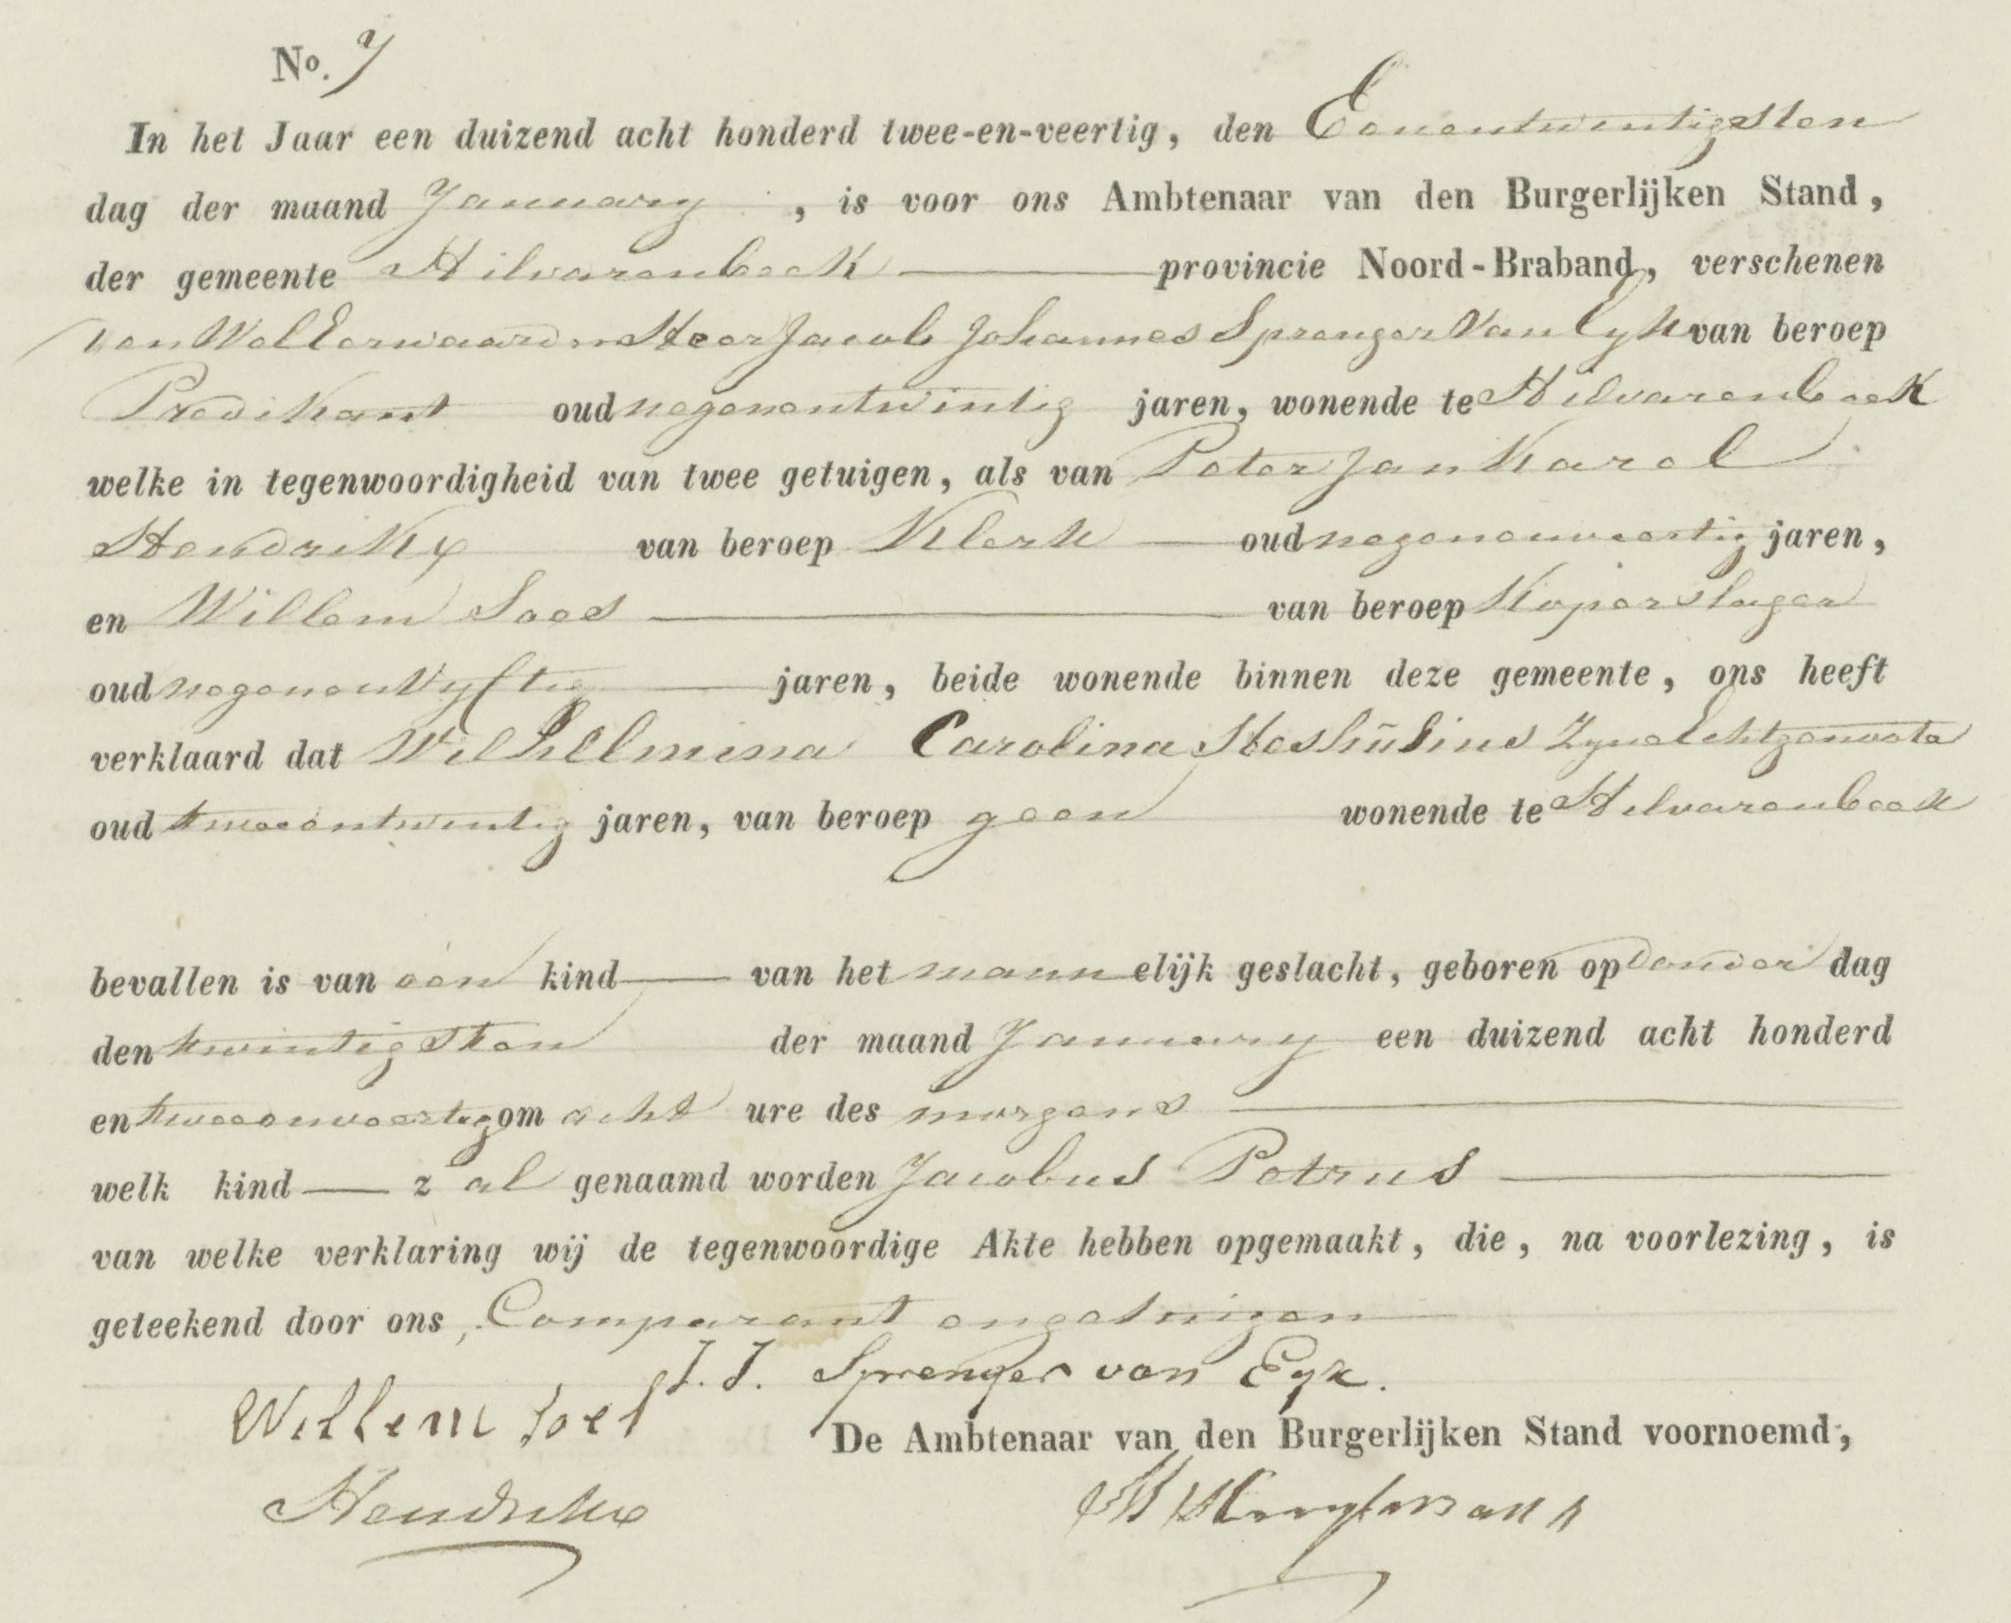 No. 7
In het Jaar een duizend acht honderd twee-en-veertig, den Eenentwintigsten
dag der maand January, is voor ons Ambtenaar van den Burgerlijken Stand,
der gemeente Hilvarenbeek provincie Noord-Braband, verschenen
den WelEerwaarden Heer Jacob Johannes Sprenger Van Eyk van beroep
Predikant oud negenentwintig jaren, wonende te Hilvarenbeek
welke in tegenwoordigheid van twee getuigen, als van Peter Jan Karel
Hendrikx van beroep Klerk oud negenenveertig jaren,
en Willem Soes van beroep Koperslager
oud negenenvyftig jaren, beide wonende binnen deze gemeente, ons heeft
verklaard dat Wilhelmina Carolina Heshusius Zyne Echtgenoote
oud tweeentwintig jaren, van beroep geen wonende te Hilvarenbeek
bevallen is van een kind van het mannelijk geslacht, geboren op donderdag
den twintigsten der maand January een duizend acht honderd
en tweeenveertig om acht ure des morgens
welk kind zal genaamd worden Jacobus Petrus
van welke verklaring wij de tegenwoordige Akte hebben opgemaakt, die, na voorlezing, is
geteekend door ons, Comparant en getuigen
J. J. Sprenger van Eyk.
Willem Soes
De Ambtenaar van den Burgerlijken Stand voornoemd,
Hendrikx